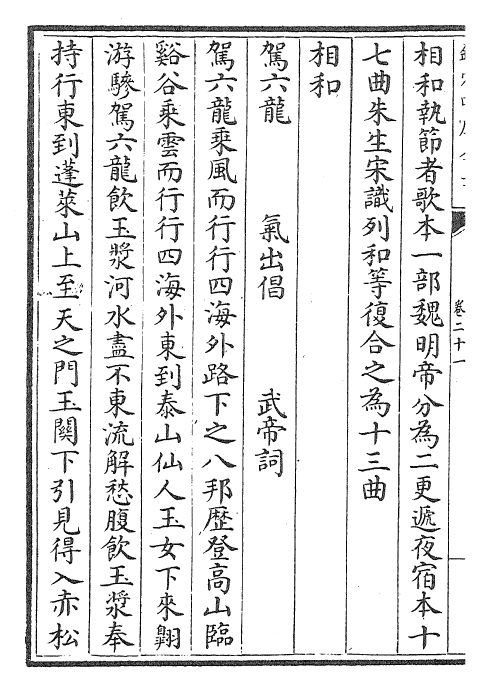 相和執節者歌本一部魏明帝分為二更遞夜宿本十
七曲朱生宋識列和等復合之為十三曲
相和
駕六龍 氣出倡 武帝詞
駕六龍乘風而行行四海外路下之八邦歴登高山臨
谿谷乘雲而行行四海外東到泰山仙人玉女下來翺
游驂駕六龍飲玉漿河水盡不東流解愁腹飲玉漿奉
持行東到蓬萊山上至天之門玉闕下引見得入赤松
卷二十一